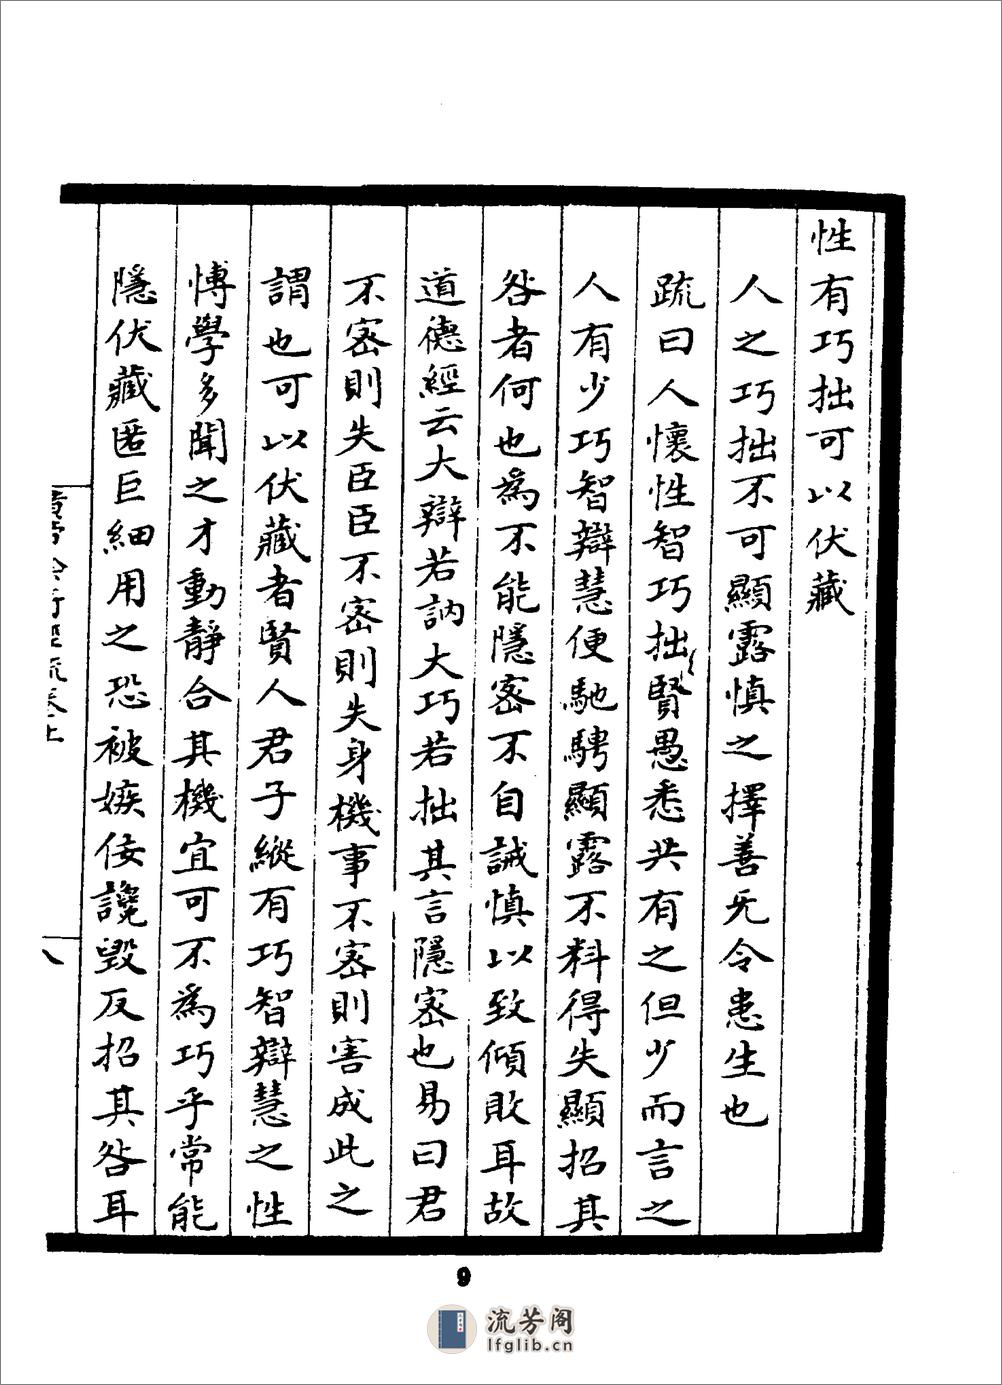 性有巧拙可以伏藏
人之巧拙不可顯露慎之擇善旡令患生也
疏曰人懷性智巧拙賢愚悉共有之但少而言之
人有少巧智辯慧便馳騁顯露不料得失顯招其
咎者何也為不能隱密不自誡慎以致傾敗耳故
道德經云大辯若訥大巧若拙其言隱密也易曰君
不密則失臣臣不密則失身機事不密則害成此之
謂也可以伏藏者賢人君子縱有巧智辯慧之性
愽學多聞之才動靜合其機宜可不為巧乎常能
隱伏藏匿巨細用之恐被嫉佞讒毀反招其咎耳
八
9
流芳阁
lfglib.cn